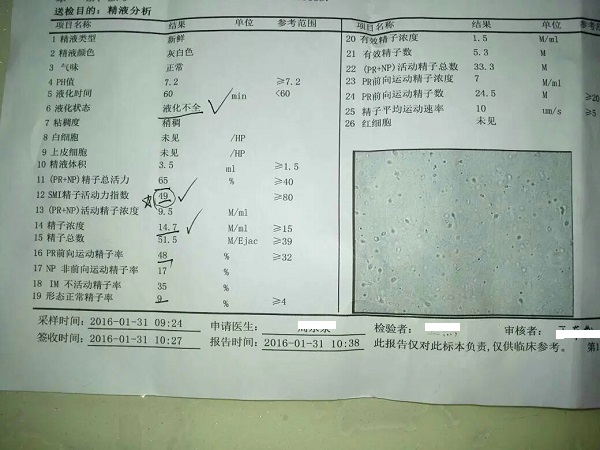 送检目的: 精液分析
项目名称 结果 单位 参考范围 项目名称 结果 单位 参考
1 精液类型 新鲜
2 精液颜色 灰白色
3 气味 正常
4 PH值 7.2 ≥7.2
5 液化时间 60 min <60
6 液化状态 液化不全
7 粘稠度 稍稠
8 白细胞 未见 /HP
9 上皮细胞 未见 /HP
10 精液体积 3.5 ml ≥1.5
11 (PR+NP)精子总活力 65 % ≥40
12 SMI精子活动力指数 49 ≥80
13 (PR+NP)活动精子浓度 9.5 M/ml
14 精子浓度 14.7 M/ml ≥15
15 精子总数 51.5 M/Ejac ≥39
16 PR前向运动精子率 48 % ≥32
17 NP 非前向运动精子率 17 %
18 IM 不活动精子率 35 %
19 形态正常精子率 9 % ≥4
20 有效精子浓度 1.5 M/ml
21 有效精子数 5.3 M
22 (PR+NP)活动精子总数 33.3 M
23 PR前向运动精子浓度 7 M/ml
24 PR前向运动精子数 24.5 M ≥20
25 精子平均运动速率 10 um/s ≥5
26 红细胞 未见
采样时间: 2016-01-31 09:24 申请医生: 检验者: 审核者:
签收时间: 2016-01-31 10:27 报告时间: 2016-01-31 10:38 此报告仅对此标本负责,仅供临床参考。 第1